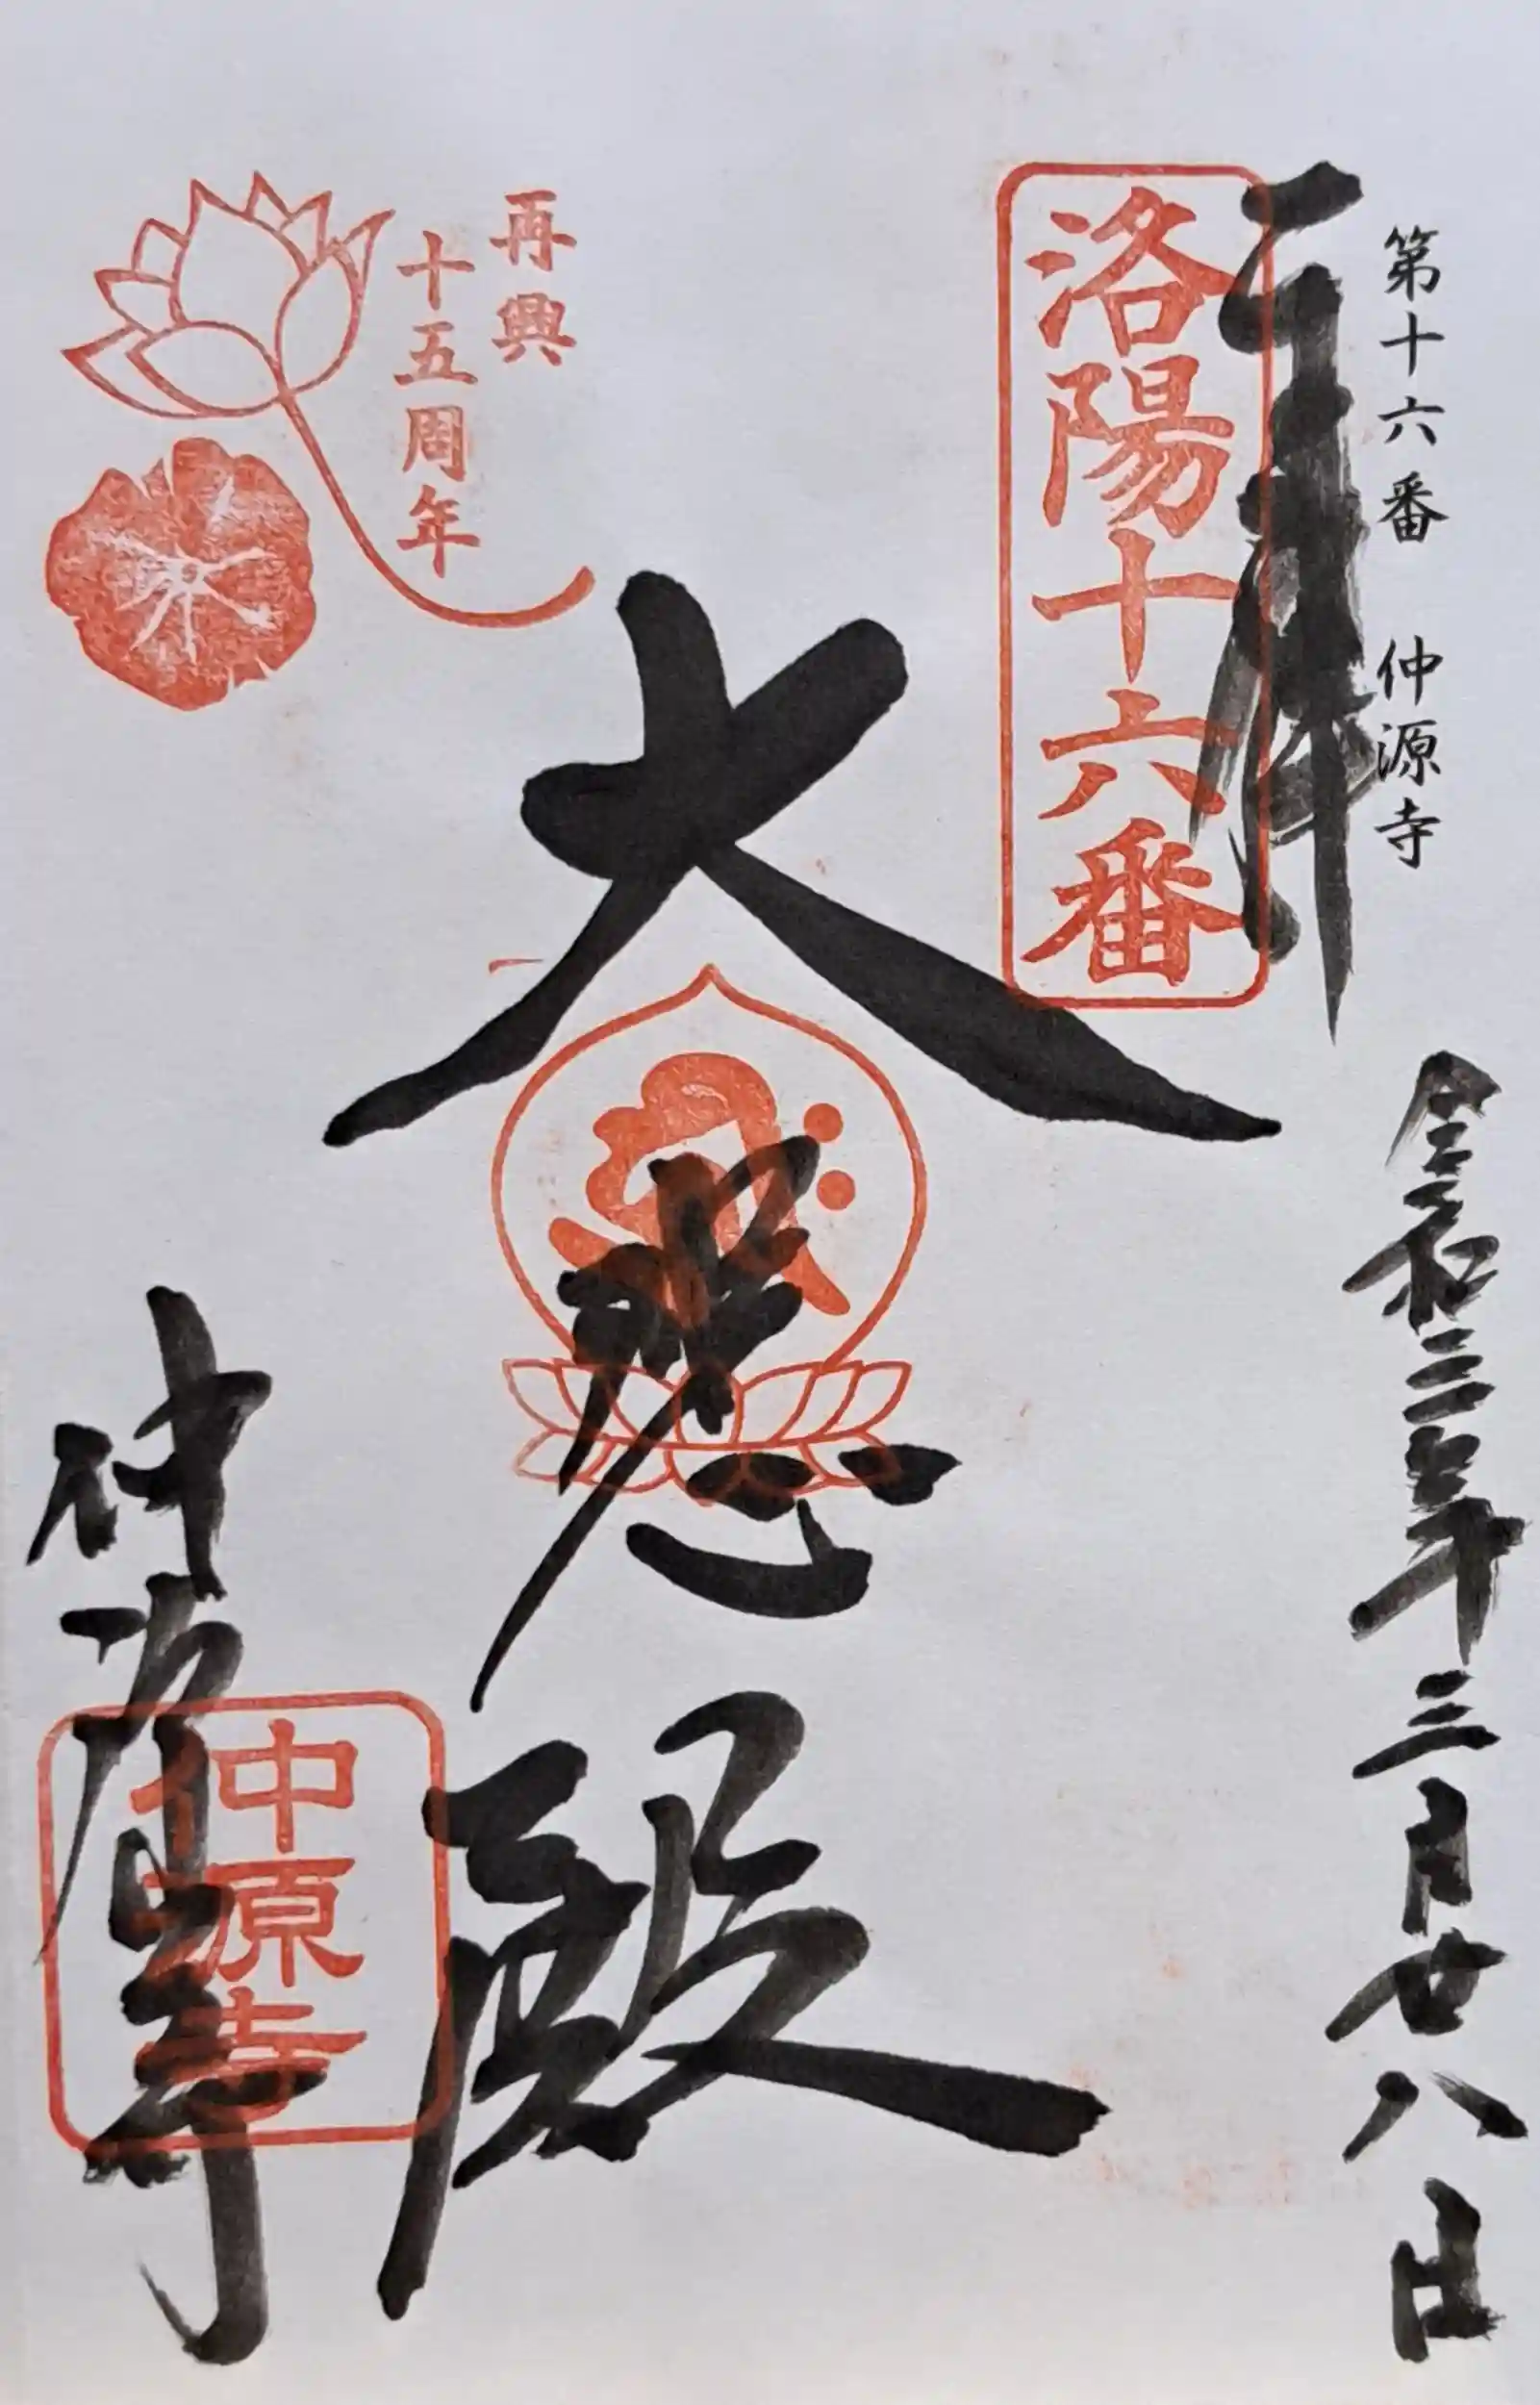 第十六番　仲源寺
奉拝
令和三年三月廿八日
洛陽十六番
大悲殿
再興
十五周年
仲源寺
仲源寺